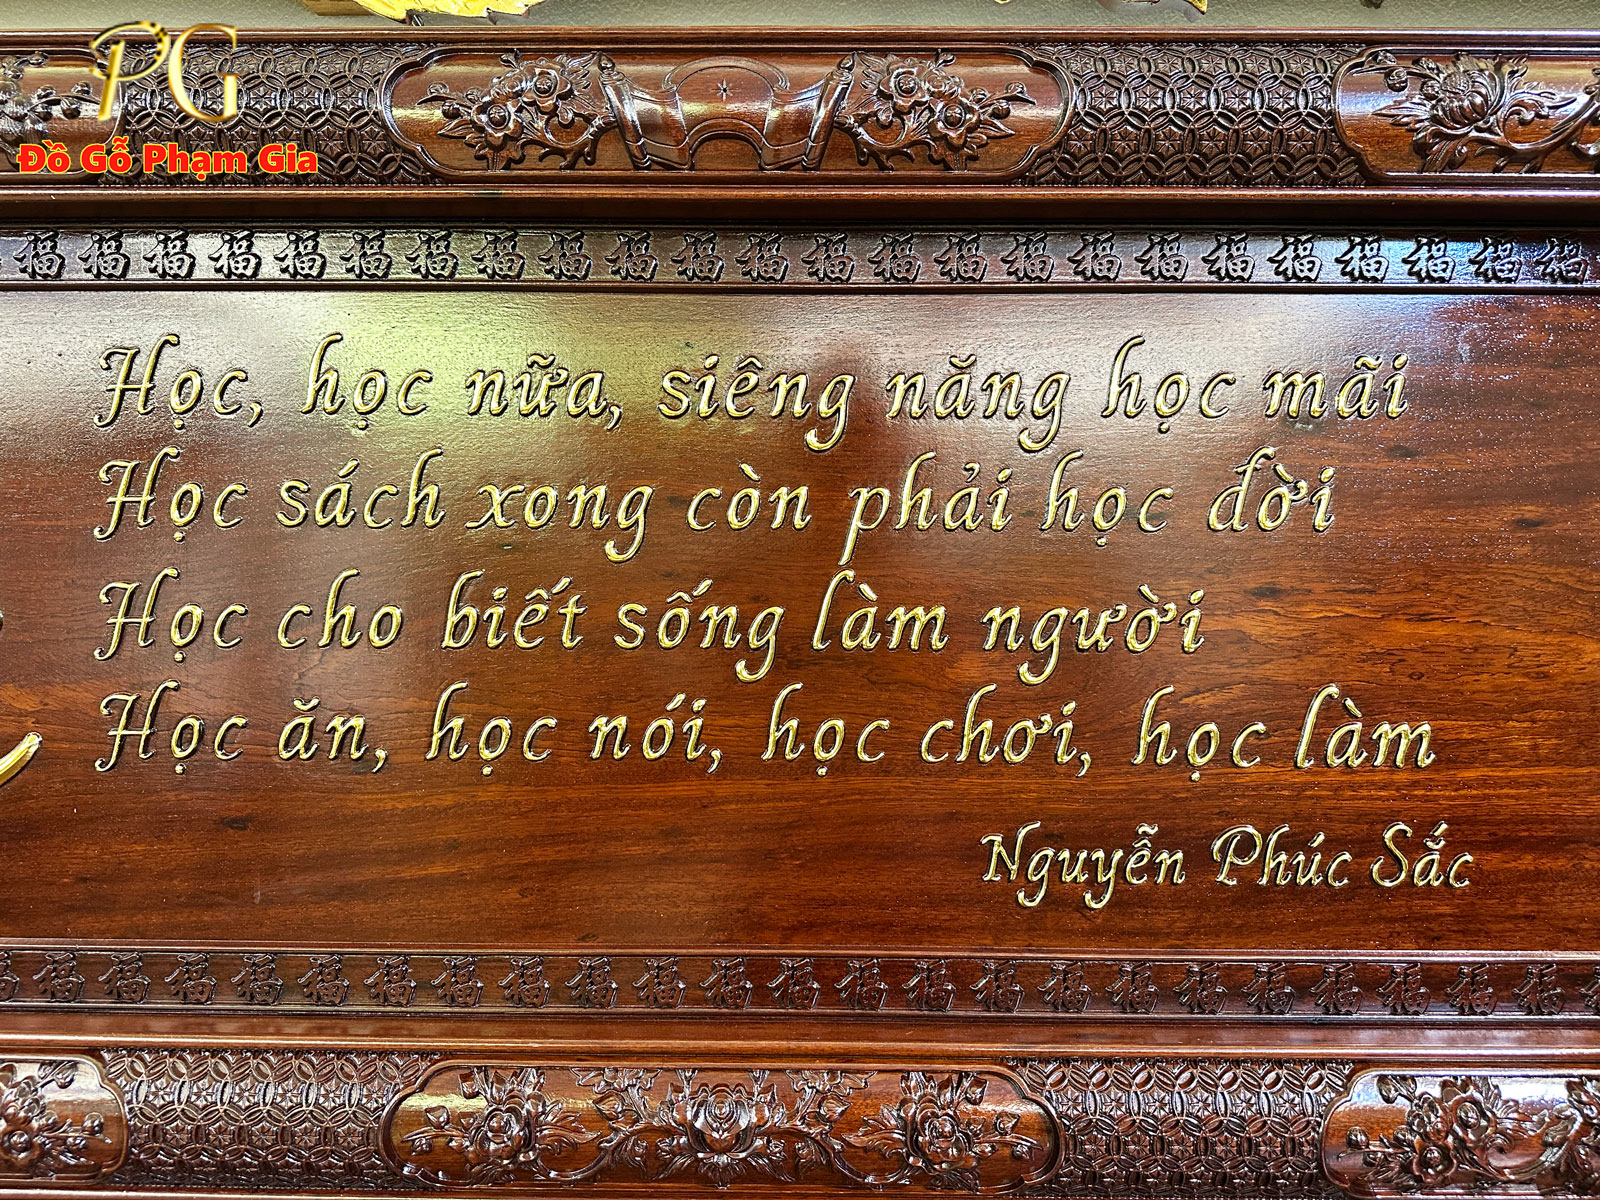 PG
Đồ Gỗ Phạm Gia
福 福 福 福 福 福 福 福 福 福 福 福 福 福 福 福 福 福 福 福 福 福 福 福
Học, học nữa, siêng năng học mãi
Học sách xong còn phải học đời
Học cho biết sống làm người
Học ăn, học nói, học chơi, học làm
Nguyễn Phúc Sắc
福 福 福 福 福 福 福 福 福 福 福 福 福 福 福 福 福 福 福 福 福 福 福 福